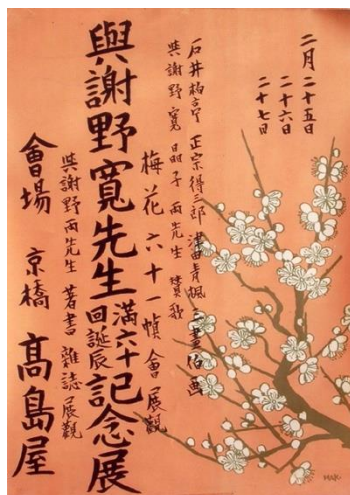 二月二十五日
二十六日
二十七日
石井柏亭 正宗得三郎 津田青楓 三畫伯画
與謝野寛 晶子 両先生 賛歌
梅花六十一幀會展観
與謝野寛先生満六十回誕辰記念展
與謝野両先生 著書 雑誌展観
會場 京橋 髙島屋